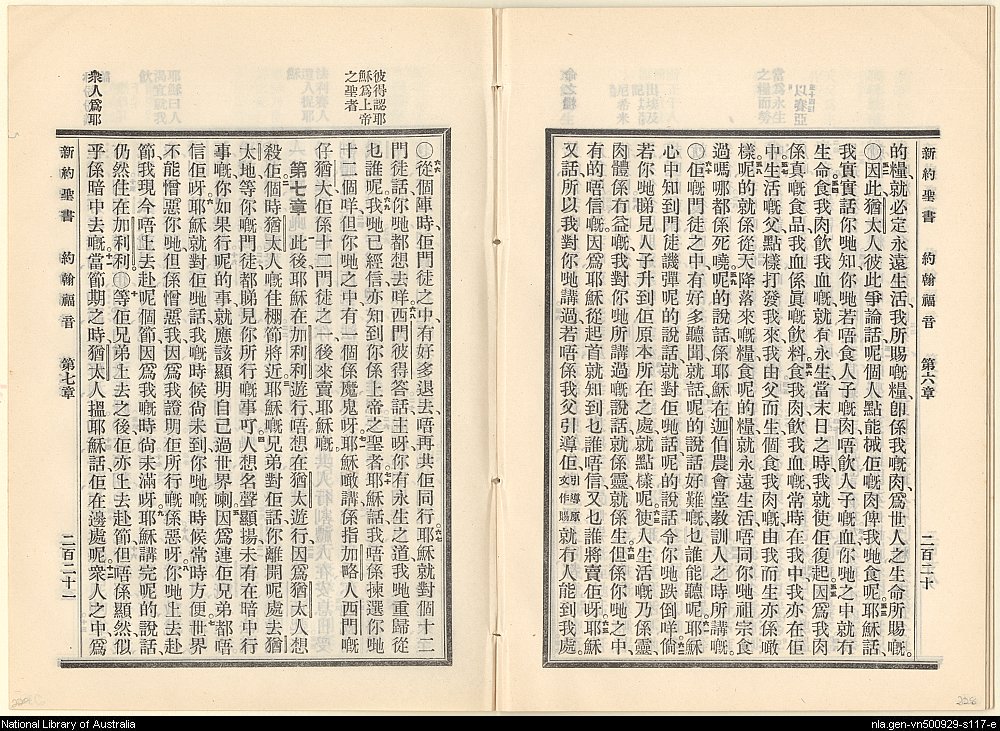 新約聖書 約翰福音 第六章 二百二十
的糧、就必定永遠生活、我所賜嘅糧、卽係我嘅肉、爲世人之生命所賜嘅。
因此猶太人彼此爭論話、呢個人點能械佢嘅肉俾我哋食呢。耶穌話、
我實實話你哋知、你哋若唔食人子嘅肉、唔飲人子嘅血、你哋之中就有
生命、食我肉飲我血嘅、就有永生、當末日之時、我就使佢復起、因爲我肉
係眞嘅食品、我血係眞嘅飲料、食我肉飲我血嘅、常時在我中、我亦在佢
中、生活嘅父點樣打發我來、我由父而生、個食我肉嘅由我而生、亦係噉
樣、呢的就係從天降落來嘅糧、食呢的糧、就永遠生活、唔同你哋祖宗食
過嗎哪都係死曉、呢的說話、係耶穌在迦伯農會堂教訓人之時所講嘅。
佢嘅門徒之中有好多聽聞就話、呢的說話好難嘅、乜誰能聽呢。耶穌
心中知到門徒譏彈呢的說話、就對佢哋話、呢的說話令你哋跌倒咩、倘
若你哋睇見人子升到佢原本所在之處、就點樣呢、使人生活嘅乃係靈、
肉體係冇益嘅、我對你哋所講過嘅說話、就係靈、就係生、但係你哋之中
有的唔信嘅、因爲耶穌從起首就知到乜誰唔信、又乜誰將賣佢呀、耶穌
又話、所以我對你哋講過、若唔係我父引導佢引導原文作賜就冇人能到我處、
彼得認耶
穌爲上帝
之聖者
衆人爲耶
從個陣時佢門徒之中有好多退去、唔再共佢同行、耶穌就對個十二
門徒話、你哋都想去咩、西門彼得答話、主呀、你有永生之道、我哋重歸從
乜誰呢、我哋已經信、亦知到你係上帝之聖者、耶穌話、我唔係揀選你哋
十二個咩、但你哋之中有一個係魔鬼呀、耶穌噉講、係指加略人西門嘅
仔猶大、佢係十二門徒之一、後來賣耶穌嘅。
第七章 此後耶穌在加利利遊行、唔想在猶太遊行、因爲猶太人想
殺佢、個時猶太人嘅住棚節將近、耶穌嘅兄弟對佢話、你離開呢處去猶
太地、等你嘅門徒都睇見你所行嘅事吖、人想名聲顯揚、未有在暗中行
事嘅、你如果行呢的事、就應該顯明自己過世界喇、因爲連佢兄弟都唔
信佢呀、耶穌就對佢哋話、我嘅時候尚未到、你哋嘅時候常時方便、世界
不能憎惡你哋、但係憎惡我、因爲我證明佢所行嘅係惡呀、你哋上去赴
節、我現今唔上去赴呢個節、因爲我嘅時尚未滿呀、耶穌講完呢的說話、
仍然住在加利利、等佢兄弟上去之後、佢亦上去赴節、但唔係顯然、似
乎係暗中去嘅、當節期之時、猶太人搵耶穌、話、佢在邊處呢、衆人之中、爲
新約聖書 約翰福音 第七章 二百二十一
National Library of Australia
nla.gen-vn500929-s117-e